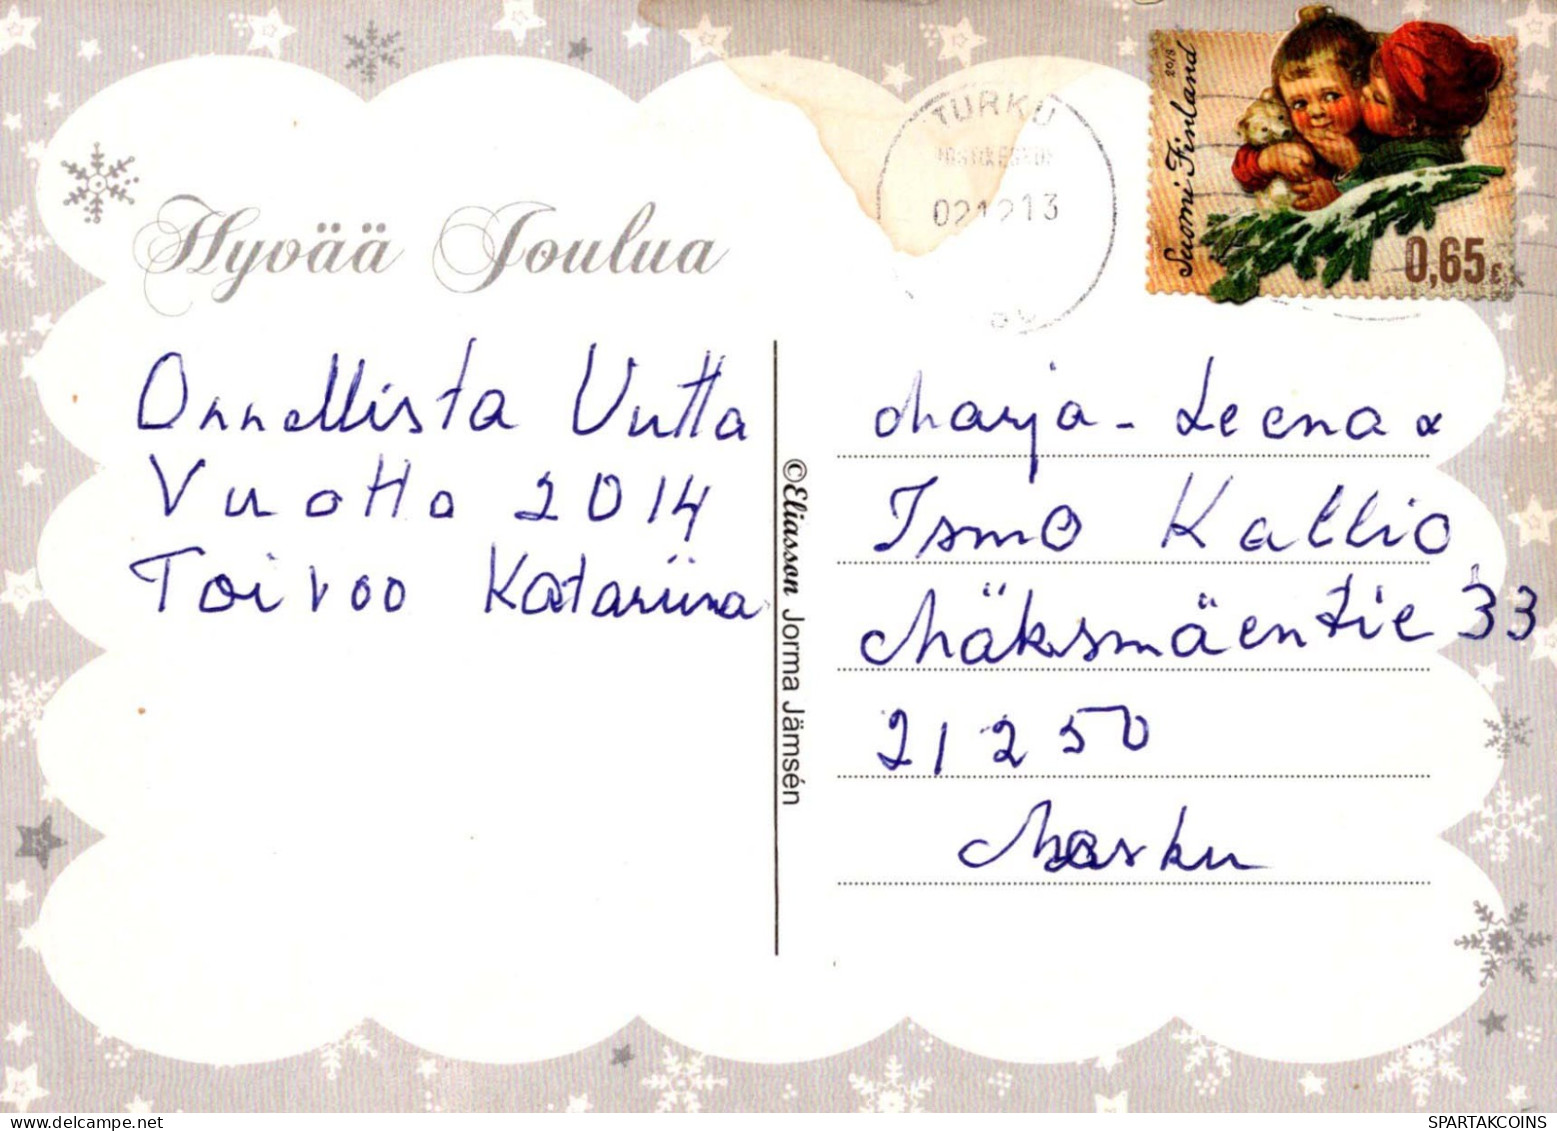 TURKU
02.12.13
2013
Suomi Finland
0,65 €
Hyvää Joulua
Onnellista Uutta
Vuotta 2014
Toivoo Katariina
©Eliasson Jorma Jämsén
Marja-Leena &
Ismo Kallio
Mäksmäentie 33
21250
Masku
SPARTAKCOINS